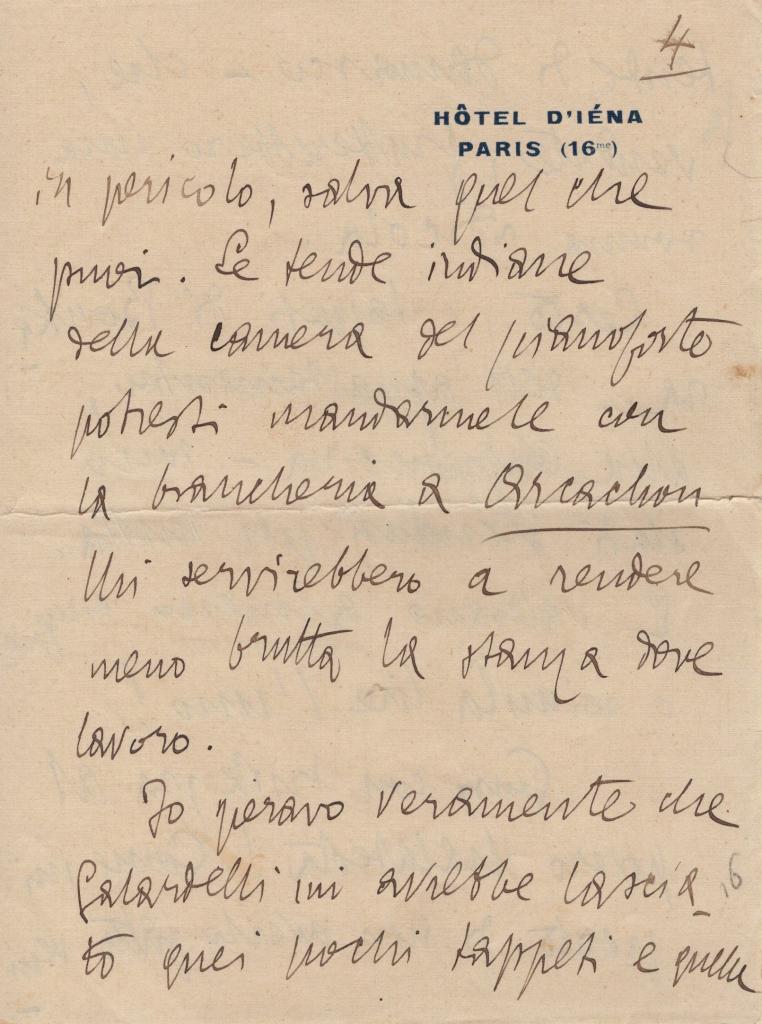 4
HÔTEL D'IÉNA
PARIS (16me)
in pericolo, salva quel che
puoi. Le tende indiane
della camera del pianoforte
potresti mandarmele con
la biancheria a Arcachon.
Mi servirebbero a rendere
meno brutta la stanza dove
lavoro.
Io speravo veramente che
mi avrebbe lascia-
to quei pochi tappeti e quelle
16